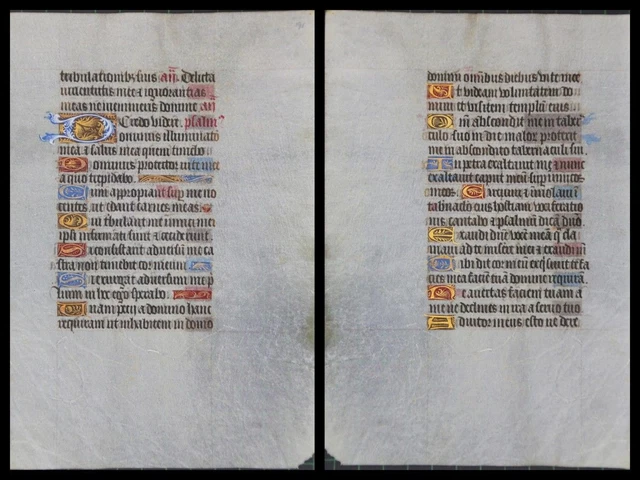 tribulationibz suis añ. Delicta
iuuentutis mee z ignorantias
meas ne memineris domine añ
Credo videre. psalm
Dominus illuminatio
mea z salus mea quem timebo
Dominus protector vite mee
a quo trepidabo.
Dum appropiant sup me no
centes ut edant carnes meas.
Qui tribulant me inimici mei
ipsi infirmati sunt z ceciderunt.
Si consistant aduersū me ca
stra non timebit cor meum
Si exurgat aduersū me p
lium in hoc ego sperabo.
Unam petii a domino hanc
requiram ut inhabitem in domo
domini omībus diebus vite mee
Ut videam voluntatem do
mini et visitem templū eius
Qm̄ abscondit me in taber
culo suo in die malor protexit
me in abscondito tabernaculi sui.
In petra exaltauit me z nunc
exaltauit caput meū sup inimicos
meos. Circuiui z īmolaui ī
tabnaclo eius hostiam vociferatio
nis cantabo z psalmū dicā dño.
Exaudi dñe vocē meā q̄ cla
maui ad te misere mei z exaudi m
Tibi dixit cor meū exq̄siuit te fa
cies mea faciē tuā domine requirā.
Ne auertas faciem tuam a
me ne declines in ira a seruo tuo
Adiutor meus esto ne dere